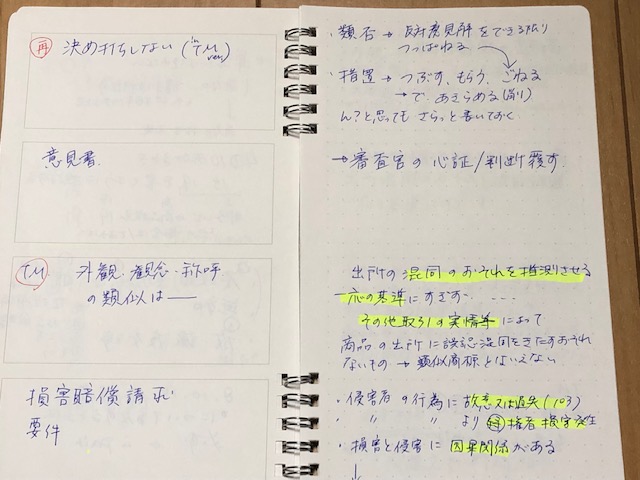 再 決め打ちしない (in TM ver.)
意見書.
TM 外観・観念・称呼
の類似は――
損害賠償請求
要件
・類否 → 反対意見解をできる限り
つっぱねる
・措置 → つぶす、もらう、ごねる
→ で、あきらめる(譲り)
ん?と思っても さらっと書いておく
→ 審査官の心証/判断覆す.
出所の混同のおそれを推測させる
一応の基準にすぎず‥ ‥‥
その他取引の実情等によって
商品の出所に誤認混同をきたすおそれ
ないもの → 類似商標とはいえない
・侵害者の行為に故意又は過失(103)
〃 〃 より 権者 損害発生
・損害と侵害に因果関係がある
↓